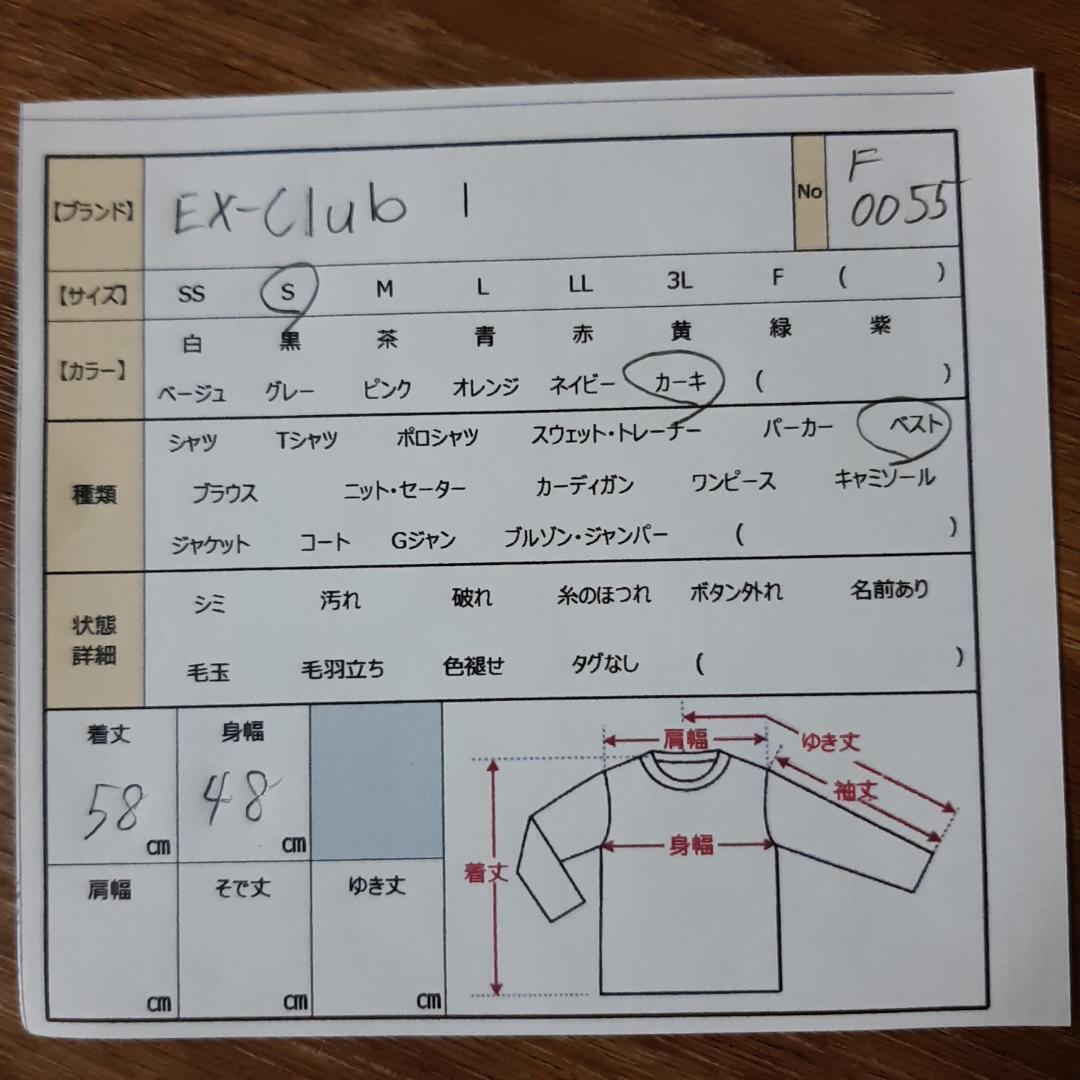 【ブランド】 EX-Club 1 No F
0055
【サイズ】 SS S M L LL 3L F ( )
【カラー】 白 黒 茶 青 赤 黄 緑 紫
ベージュ グレー ピンク オレンジ ネイビー カーキ ( )
種類 シャツ Tシャツ ポロシャツ スウェット・トレーナー パーカー ベスト
ブラウス ニット・セーター カーディガン ワンピース キャミソール
ジャケット コート Gジャン ブルゾン・ジャンパー ( )
状態
詳細
シミ 汚れ 破れ 糸のほつれ ボタン外れ 名前あり
毛玉 毛羽立ち 色褪せ タグなし ( )
着丈 身幅
58 cm 48 cm
肩幅 そで丈 ゆき丈
cm cm cm
肩幅 ゆき丈
袖丈
身幅
着丈